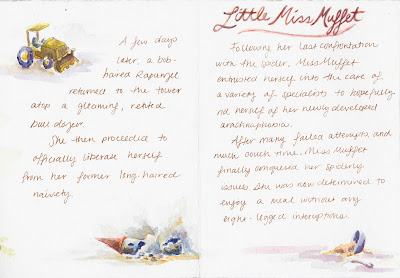 A few days
later, a bob-
haired Rapunzel
returned to the tower
atop a gleaming, rented
bull dozer.
She then proceeded to
officially liberate herself
from her former long-haired
naivety.
Little Miss Muffet
Following her last confrontation
with the spider, Miss Muffet
entrusted herself into the care of
a variety of specialists to hopefully
rid herself of her newly developed
arachnaphobia.
After many failed attempts and
much couch time, Miss Muffet
finally conquered her spiderly
issues. She was now determined to
enjoy a meal without any
eight-legged interuptions.